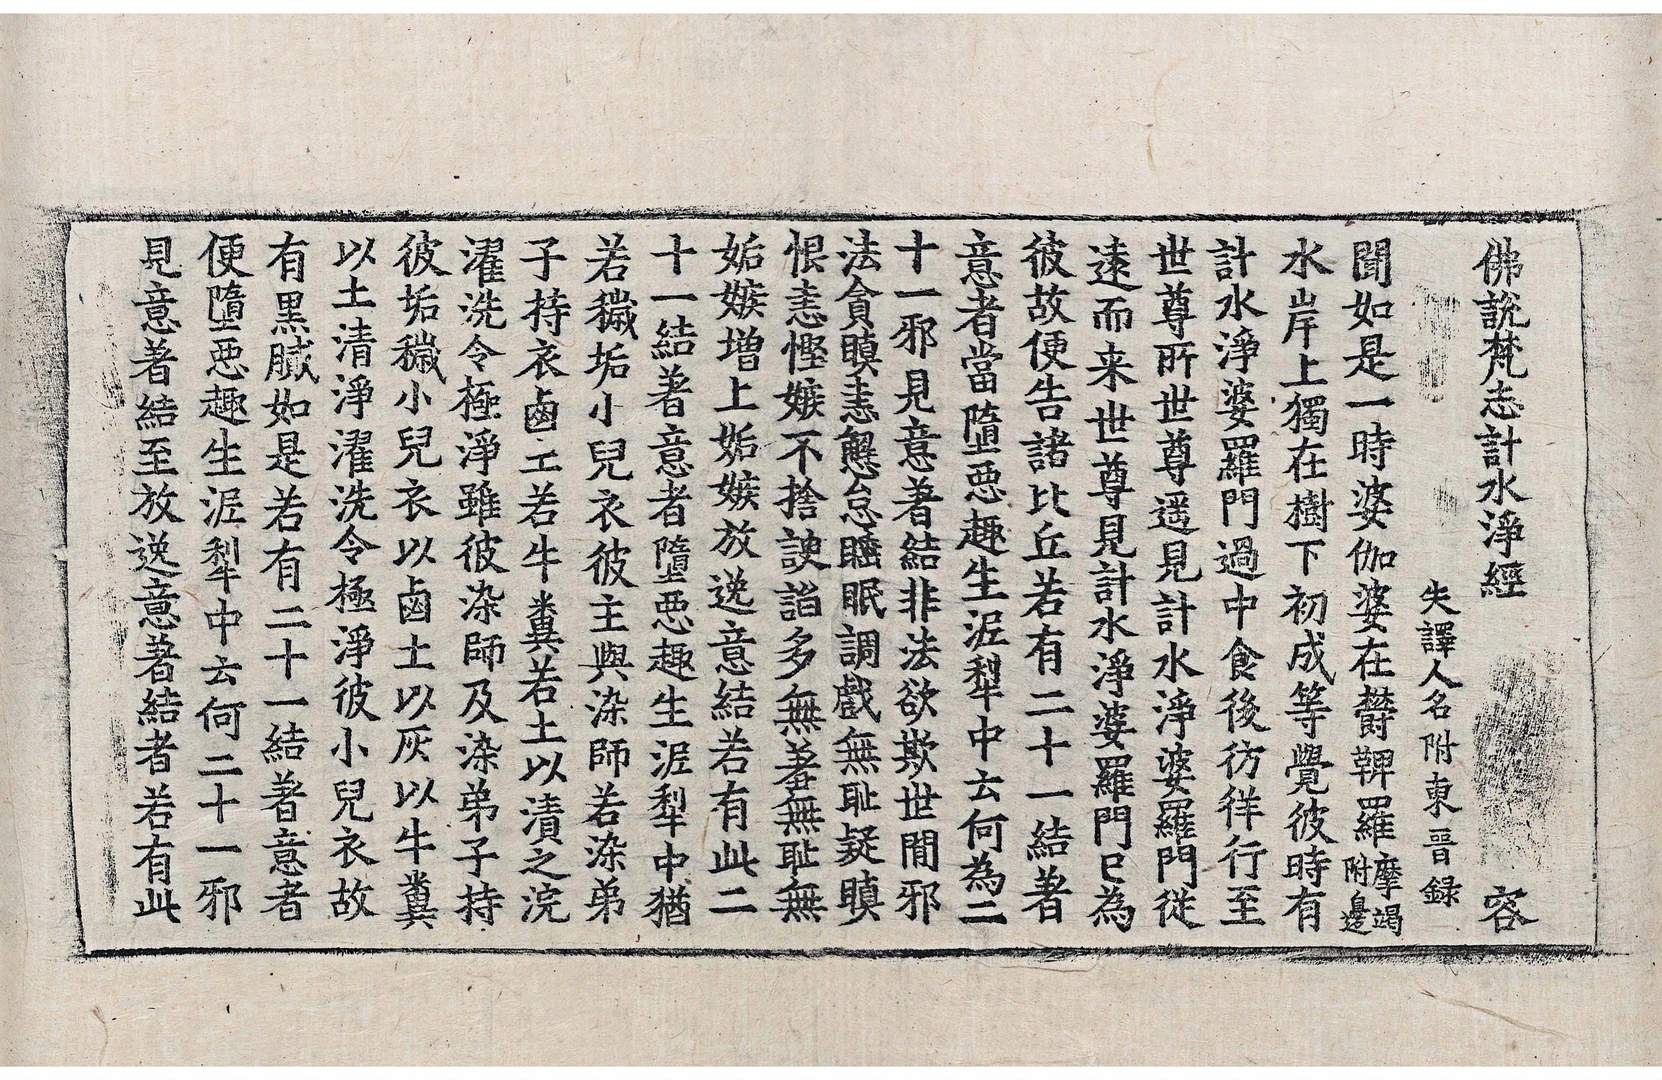 佛說梵志計水淨經 容
失譯人名附東晉錄
聞如是一時婆伽婆在欝鞞羅摩竭附邊
水岸上獨在樹下初成等覺彼時有
計水淨婆羅門過中食後彷徉行至
世尊所世尊遥見計水淨婆羅門從
遠而来世尊見計水淨婆羅門已為
彼故便告諸比丘若有二十一結著
意者當墮惡趣生泥犁中云何為二
十一邪見意著結非法欲欺世間邪
法貪瞋恚懈怠睡眠調戲無耻疑瞋
恨恚慳嫉不捨諛諂多無羞無耻無
姤嫉增上姤嫉放逸意結若有此二
十一結著意者墮惡趣生泥犁中猶
若穢垢小兒衣彼主與染師若染弟
子持衣鹵土若牛糞若土以漬之浣
濯洗令極淨雖彼染師及染弟子持
彼垢穢小兒衣以鹵土以灰以牛糞
以土清淨濯洗令極淨彼小兒衣故
有黑膩如是若有二十一結著意者
便墮惡趣生泥犁中云何二十一邪
見意著結至放逸意著結者若有此